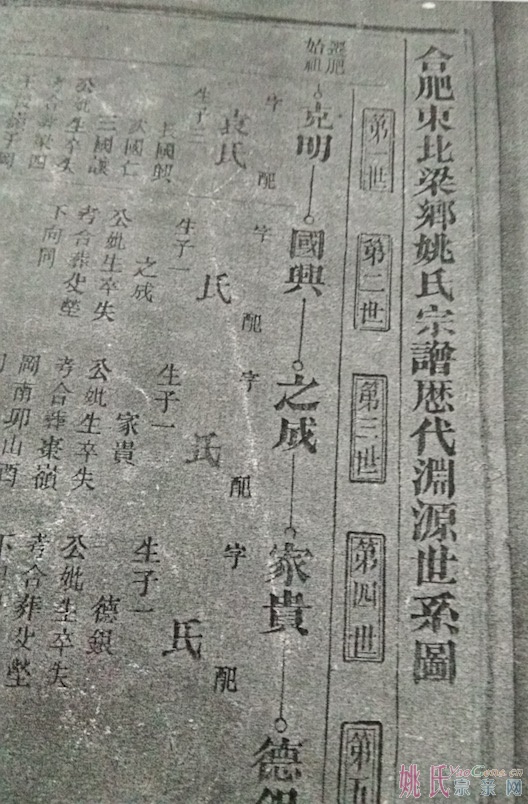 合肥東北梁鄉姚氏宗譜歷代淵源世系圖
第一世
第二世
第三世
第四世
第五
遷肥
始祖
克明
國興
之成
家貴
德銀
字
配
袁氏
生子三
長國興
次國仁
三國讓
公妣生卒失
考合葬梁四
字
配
氏
生子一
之成
公妣生卒失
考合葬史塋
下向同
字
配
氏
生子一
家貴
公妣生卒失
考合葬棗嶺
岡南卯山酉
字
配
氏
生子一
德銀
公妣生卒失
考合葬史塋
姚氏宗亲网
YaoGens.cn